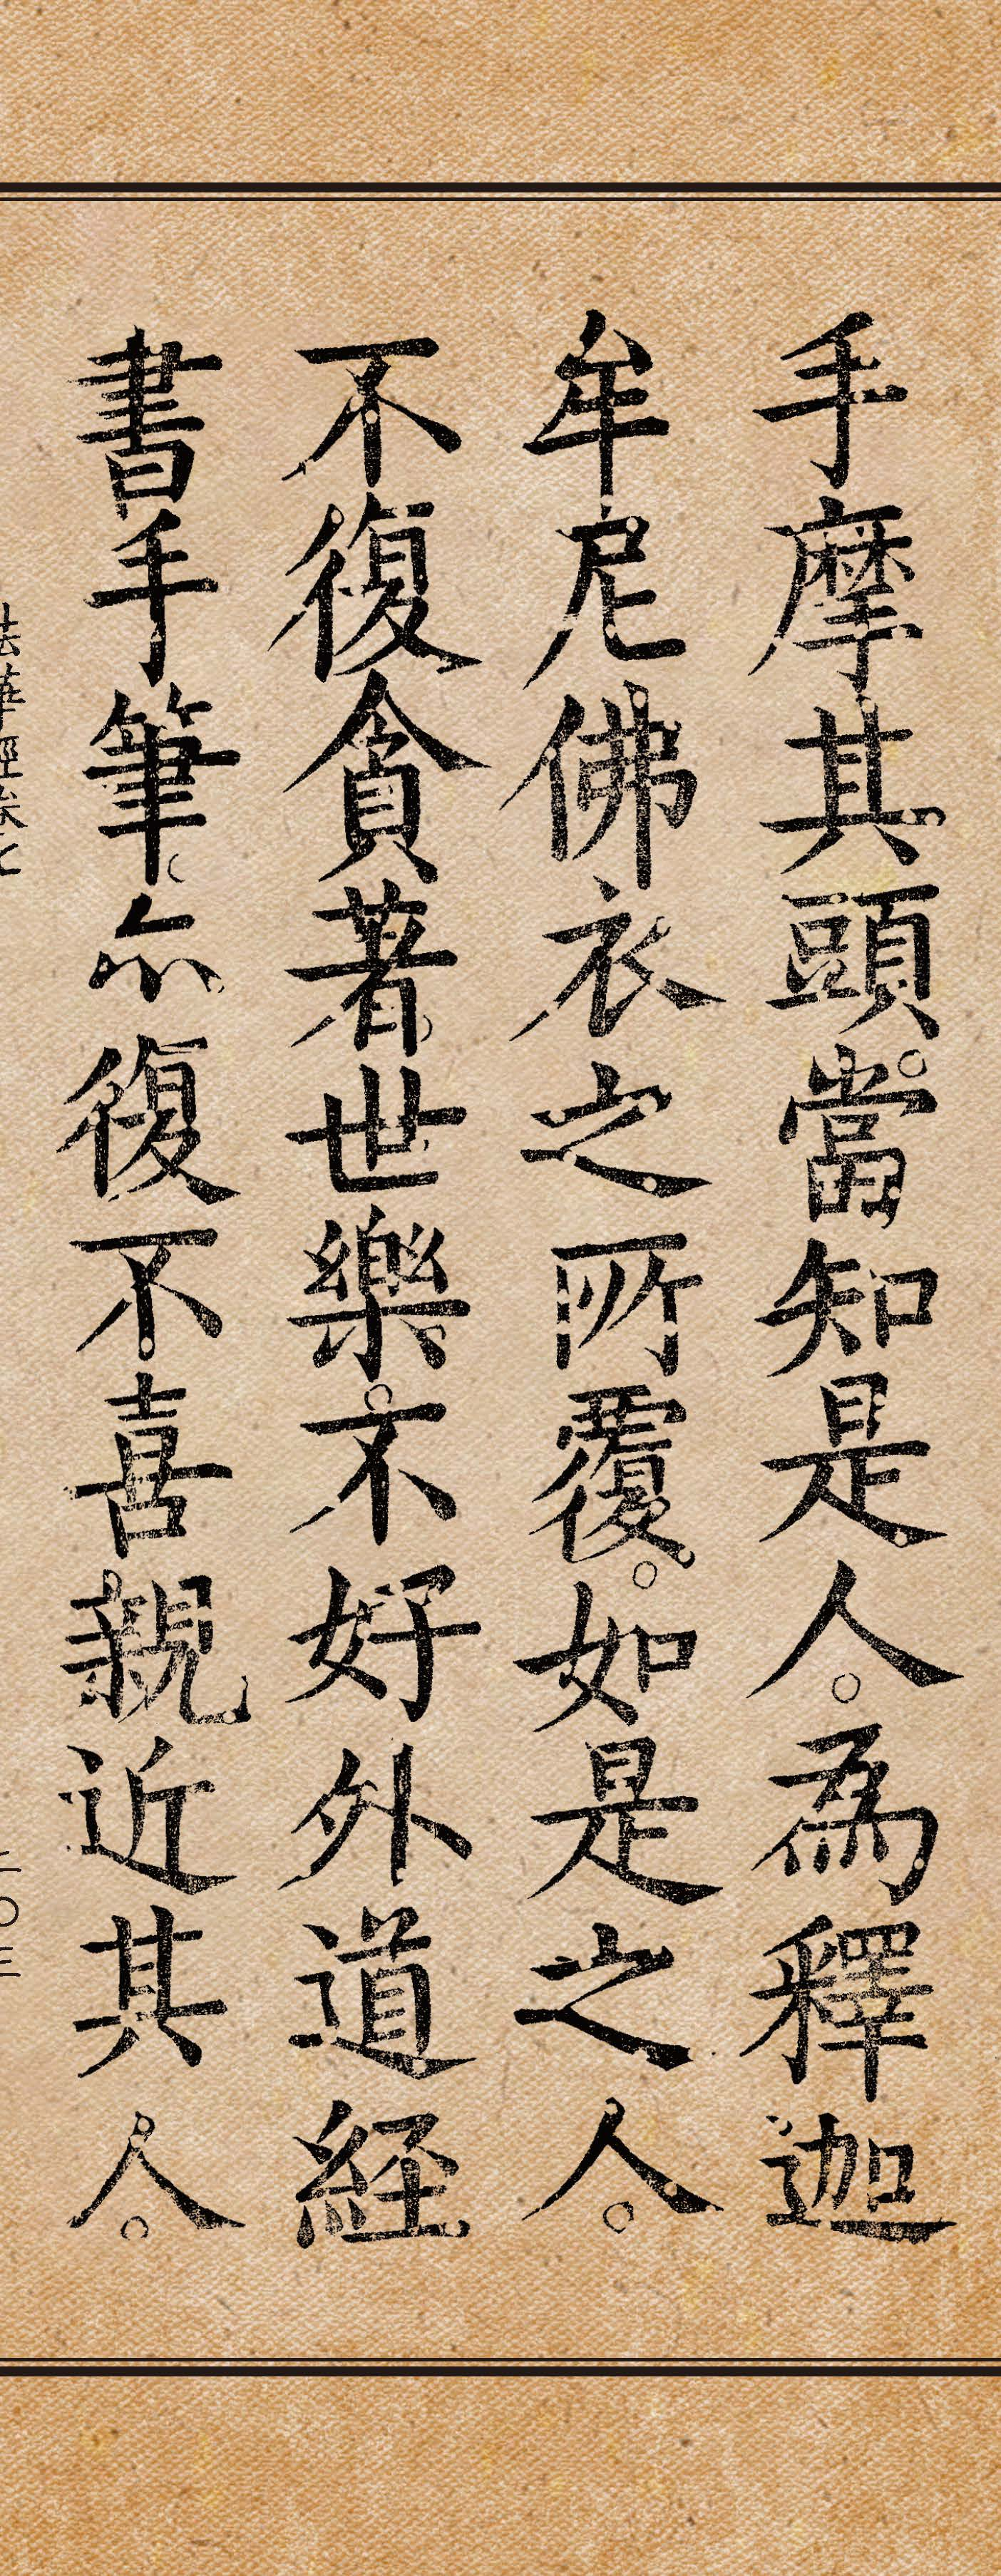 手摩其頭。當知是人。為釋迦
牟尼佛衣之所覆。如是之人。
不復貪著世樂。不好外道経
書手筆。亦復不喜親近其人。
法華經卷七
二〇三